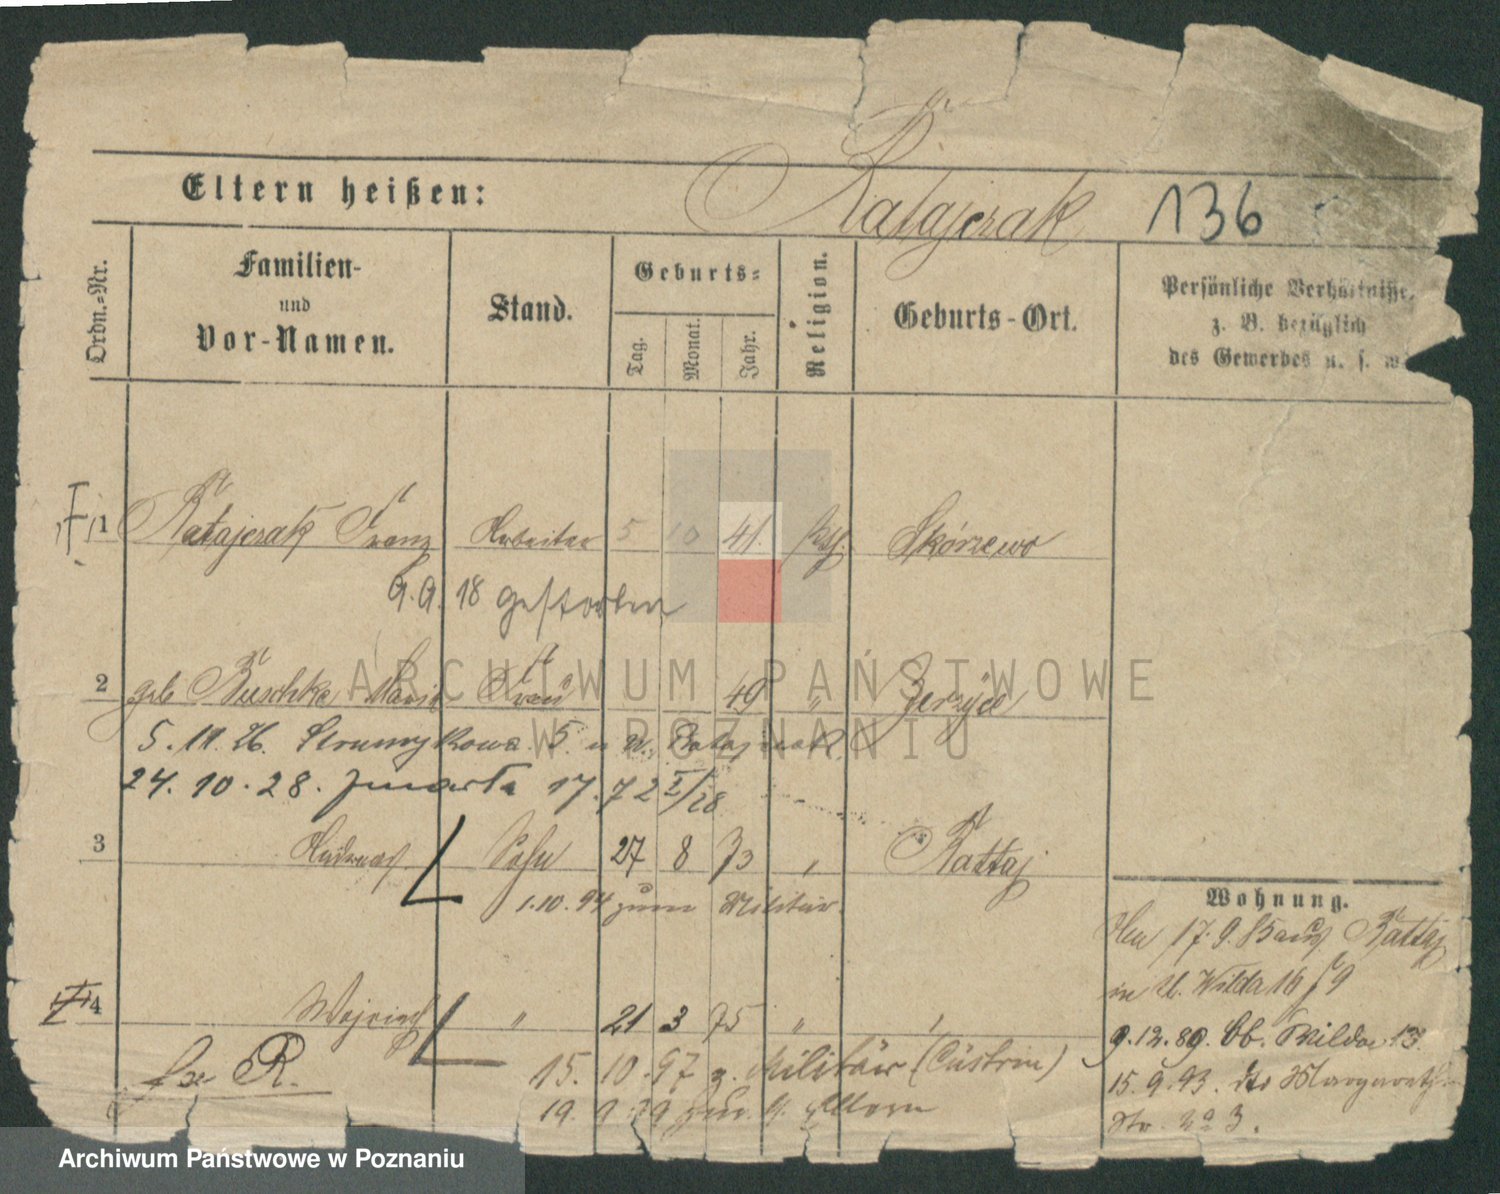 Eltern heißen: Ratajczak 136
Ordn.-Nr.
Familien- und Vor-Namen.
Stand.
Geburts-
Tag. Monat. Jahr.
Religion.
Geburts-Ort.
Persönliche Verhältnisse,
z. B. bezüglich
des Gewerbes u. s. w.
1 Ratajczak Franz Arbeiter 5 10 41. Skórzewo
9.9.18 gestorben
2 geb Ruschke Maria Frau 49 " Jerzyce
5.11.26. Strumykowa 5. Ratajczak
24.10.28. zmarła 17.7 2 I/28
3 Andreas Sohn 27 8 73 " Rattaj
1.10.94 zum Militär.
4 Wojciech " 21 3 75 " "
15.10.97 z. Militär (Cüstrin)
19.9.99 zur. Eltern
R.
Wohnung.
17.9.85 aus Rattaj
in U. Wilda 16
9.12.89. Ob. Wilda 13.
15.9.93. dto Margareth-
Str. No 3.
ARCHIWUM PAŃSTWOWE
W POZNANIU
Archiwum Państwowe w Poznaniu